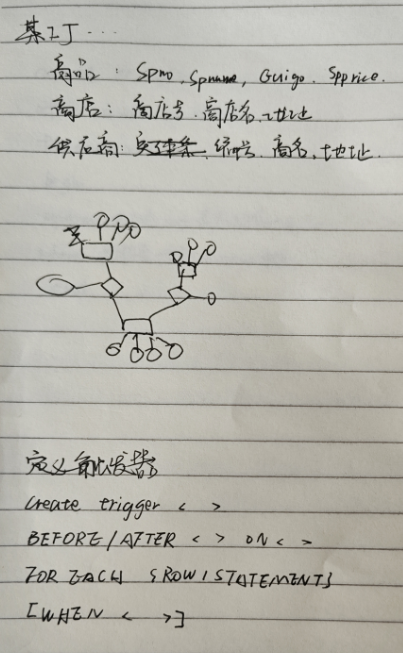 某工厂...
商品: Spno, Spname, Guige, Spprice.
商店: 商店号, 商店名, 地址
供应商: 编号, 商名, 地址.
定义触发器
Create trigger < >
BEFORE/AFTER < > ON < >
FOR EACH {ROW/STATEMENT}
[WHEN < >]